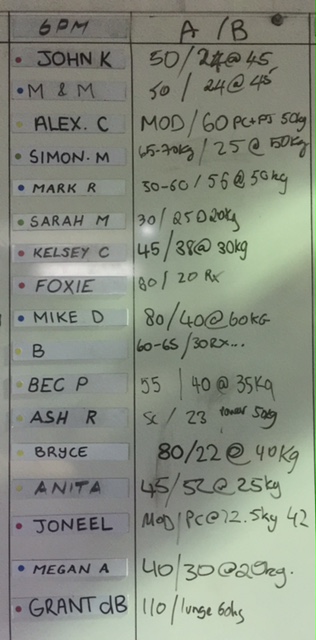 6PM A / B
JOHN K 50/24@45
M & M 50 / 24@45
ALEX. C MOD/60 PC+PJ 50kg
SIMON. M 65-70kg / 25@50kg
MARK R 50-60/56@50kg
SARAH M 30/25@20kg
KELSEY C 45/38@30kg
FOXIE 80/20 Rx
MIKE D 80/40@60KG
B 60-65/30RX...
BEC P 55 / 40@35Kg
ASH R SC / 23 Power 50kg
BRYCE 80/22@40Kg
ANITA 45/52@25kg
JONEEL MOD/PC@72.5kg 42
MEGAN A 40/30@20kg.
GRANT dB 110/lunge 60kg